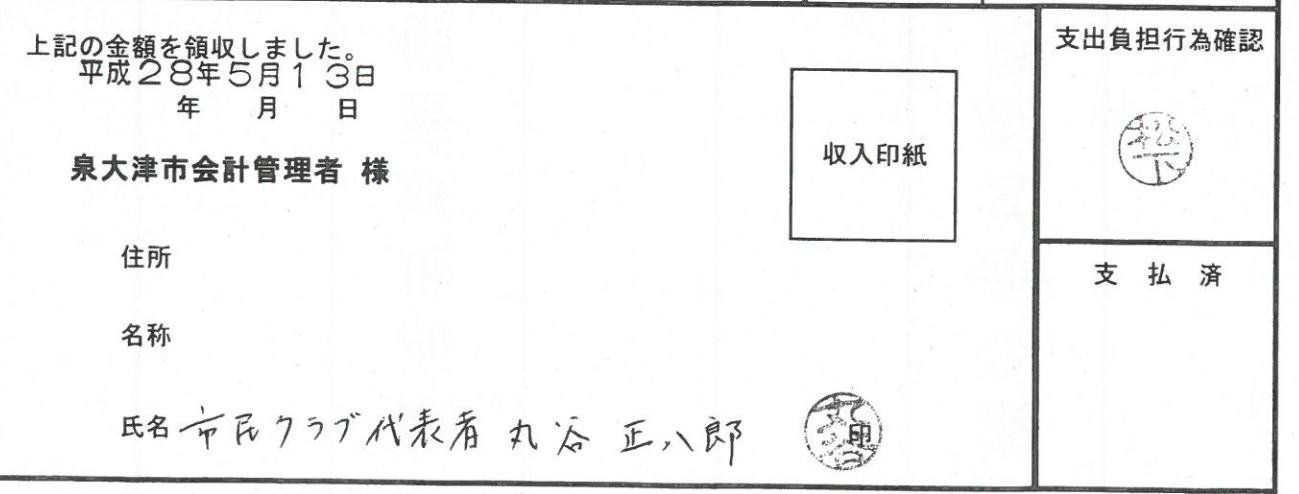 上記の金額を領収しました。
平成28年5月13日
年 月 日
泉大津市会計管理者 様
住所
名称
氏名 市民クラブ代表者 丸谷 正八郎
丸谷
印
収入印紙
支出負担行為確認
松下
支 払 済